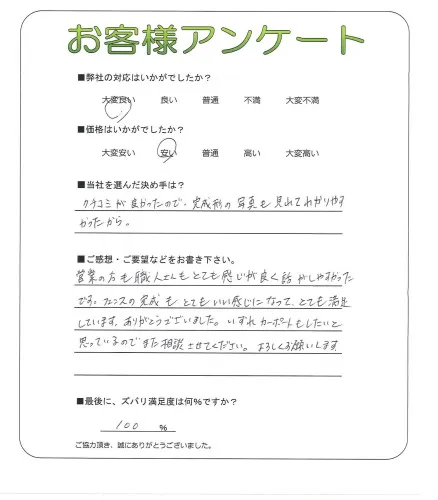 お客様アンケート
■弊社の対応はいかがでしたか？
大変良い 良い 普通 不満 大変不満
■価格はいかがでしたか？
大変安い 安い 普通 高い 大変高い
■当社を選んだ決め手は？
クチコミが良かったので、完成形の写真も見れてわかりやす
かったから。
■ご感想・ご要望などをお書き下さい。
営業の方も職人さんもとても感じが良く話がしやすかった
です。フェンスの完成もとてもいい感じになって、とても満足
しています。ありがとうございました。いずれカーポートもしたいと
思っているのでまた相談させてください。よろしくお願いします
■最後に、ズバリ満足度は何%ですか？
100 %
ご協力頂き、誠にありがとうございました。